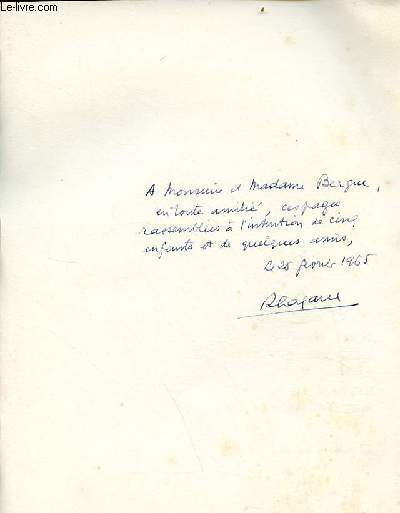 Le-livre.com
A Monsieur et Madame Bergue,
en toute amitié, ces pages
rassemblées à l'intention de cinq
enfants et de quelques amis,
le 25 février 1965